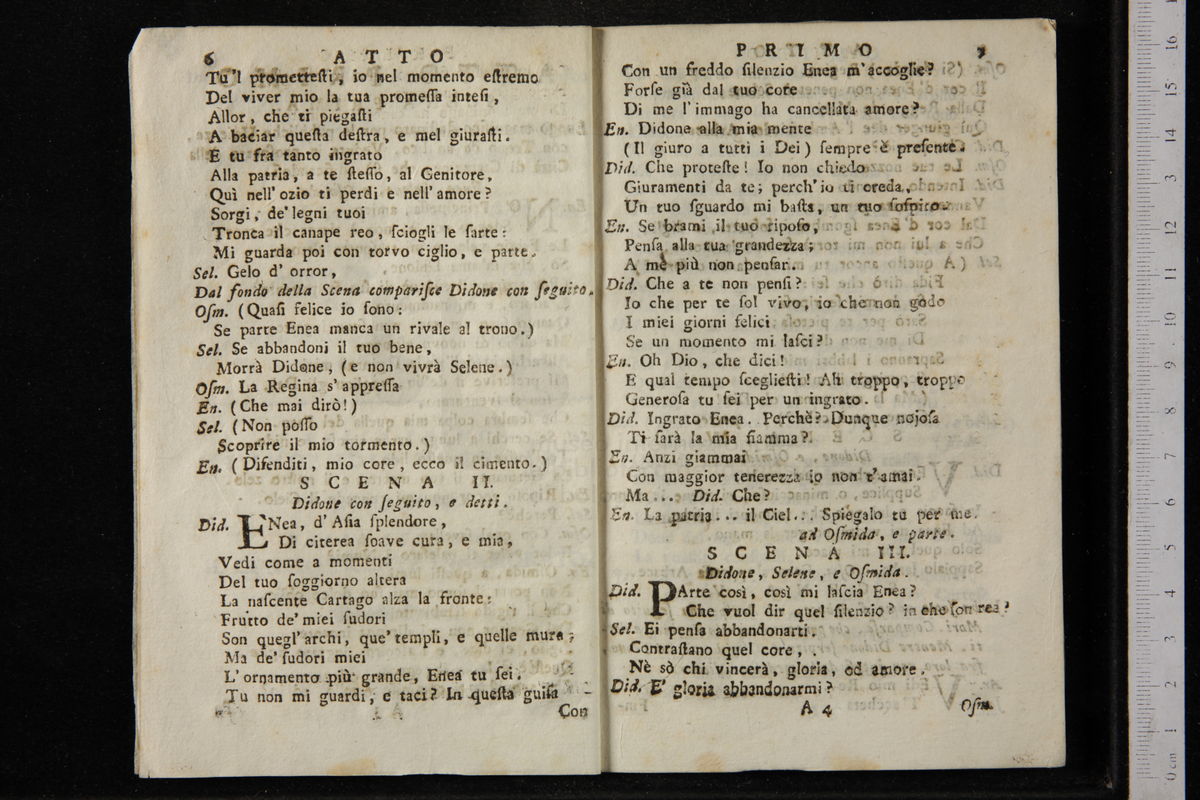 6 ATTO
Tu'l promettesti, io nel momento estremo
Del viver mio la tua promessa intesi,
Allor, che ti piegasti
A baciar questa destra, e mel giurasti.
E tu fra tanto ingrato
Alla patria, a te stesso, al Genitore,
Quì nell' ozio ti perdi e nell' amore?
Sorgi, de' legni tuoi
Tronca il canape reo, sciogli le sarte:
Mi guarda poi con torvo ciglio, e parte.
Sel. Gelo d' orror,
Dal fondo della Scena comparisce Didone con seguito.
Osm. (Quasi felice io sono:
Se parte Enea manca un rivale al trono.)
Sel. Se abbandoni il tuo bene,
Morrà Didone, (e non vivrà Selene.)
Osm. La Regina s' appressa
En. (Che mai dirò!)
Sel. (Non posso
Scoprire il mio tormento.)
En. (Difenditi, mio core, ecco il cimento.)
SCENA II.
Didone con seguito, e detti.
Did. ENea, d' Asia splendore,
Di citerea soave cura, e mia,
Vedi come a momenti
Del tuo soggiorno altera
La nascente Cartago alza la fronte:
Frutto de' miei sudori
Son quegl' archi, que' templi, e quelle mura;
Ma de' sudori miei
L' ornamento più grande, Enea tu sei.
Tu non mi guardi, e taci? In questa guisa
Con
PRIMO 7
Con un freddo silenzio Enea m'accoglie?
Forse già dal tuo core
Di me l' immago ha cancellata amore?
En. Didone alla mia mente
(Il giuro a tutti i Dei) sempre è presente.
Did. Che proteste! Io non chiedo
Giuramenti da te; perch' io ti creda,
Un tuo sguardo mi basta, un tuo sospiro.
En. Se brami il tuo riposo,
Pensa alla tua grandezza;
A me più non pensar.
Did. Che a te non pensi?
Io che per te sol vivo, io che non godo
I miei giorni felici
Se un momento mi lasci?
En. Oh Dio, che dici!
E qual tempo scegliesti! Ah troppo, troppo
Generosa tu sei per un ingrato.
Did. Ingrato Enea. Perchè? Dunque nojosa
Ti sarà la mia fiamma?
En. Anzi giammai
Con maggior tenerezza io non t' amai.
Ma... Did. Che?
En. La patria... il Ciel... Spiegalo tu per me.
ad Osmida, e parte.
SCENA III.
Didone, Selene, e Osmida.
Did. PArte così, così mi lascia Enea?
Che vuol dir quel silenzio? in che son rea?
Sel. Ei pensa abbandonarti.
Contrastano quel core,
Nè sò chi vincerà, gloria, od amore.
Did. E' gloria abbandonarmi?
A 4 Osm.